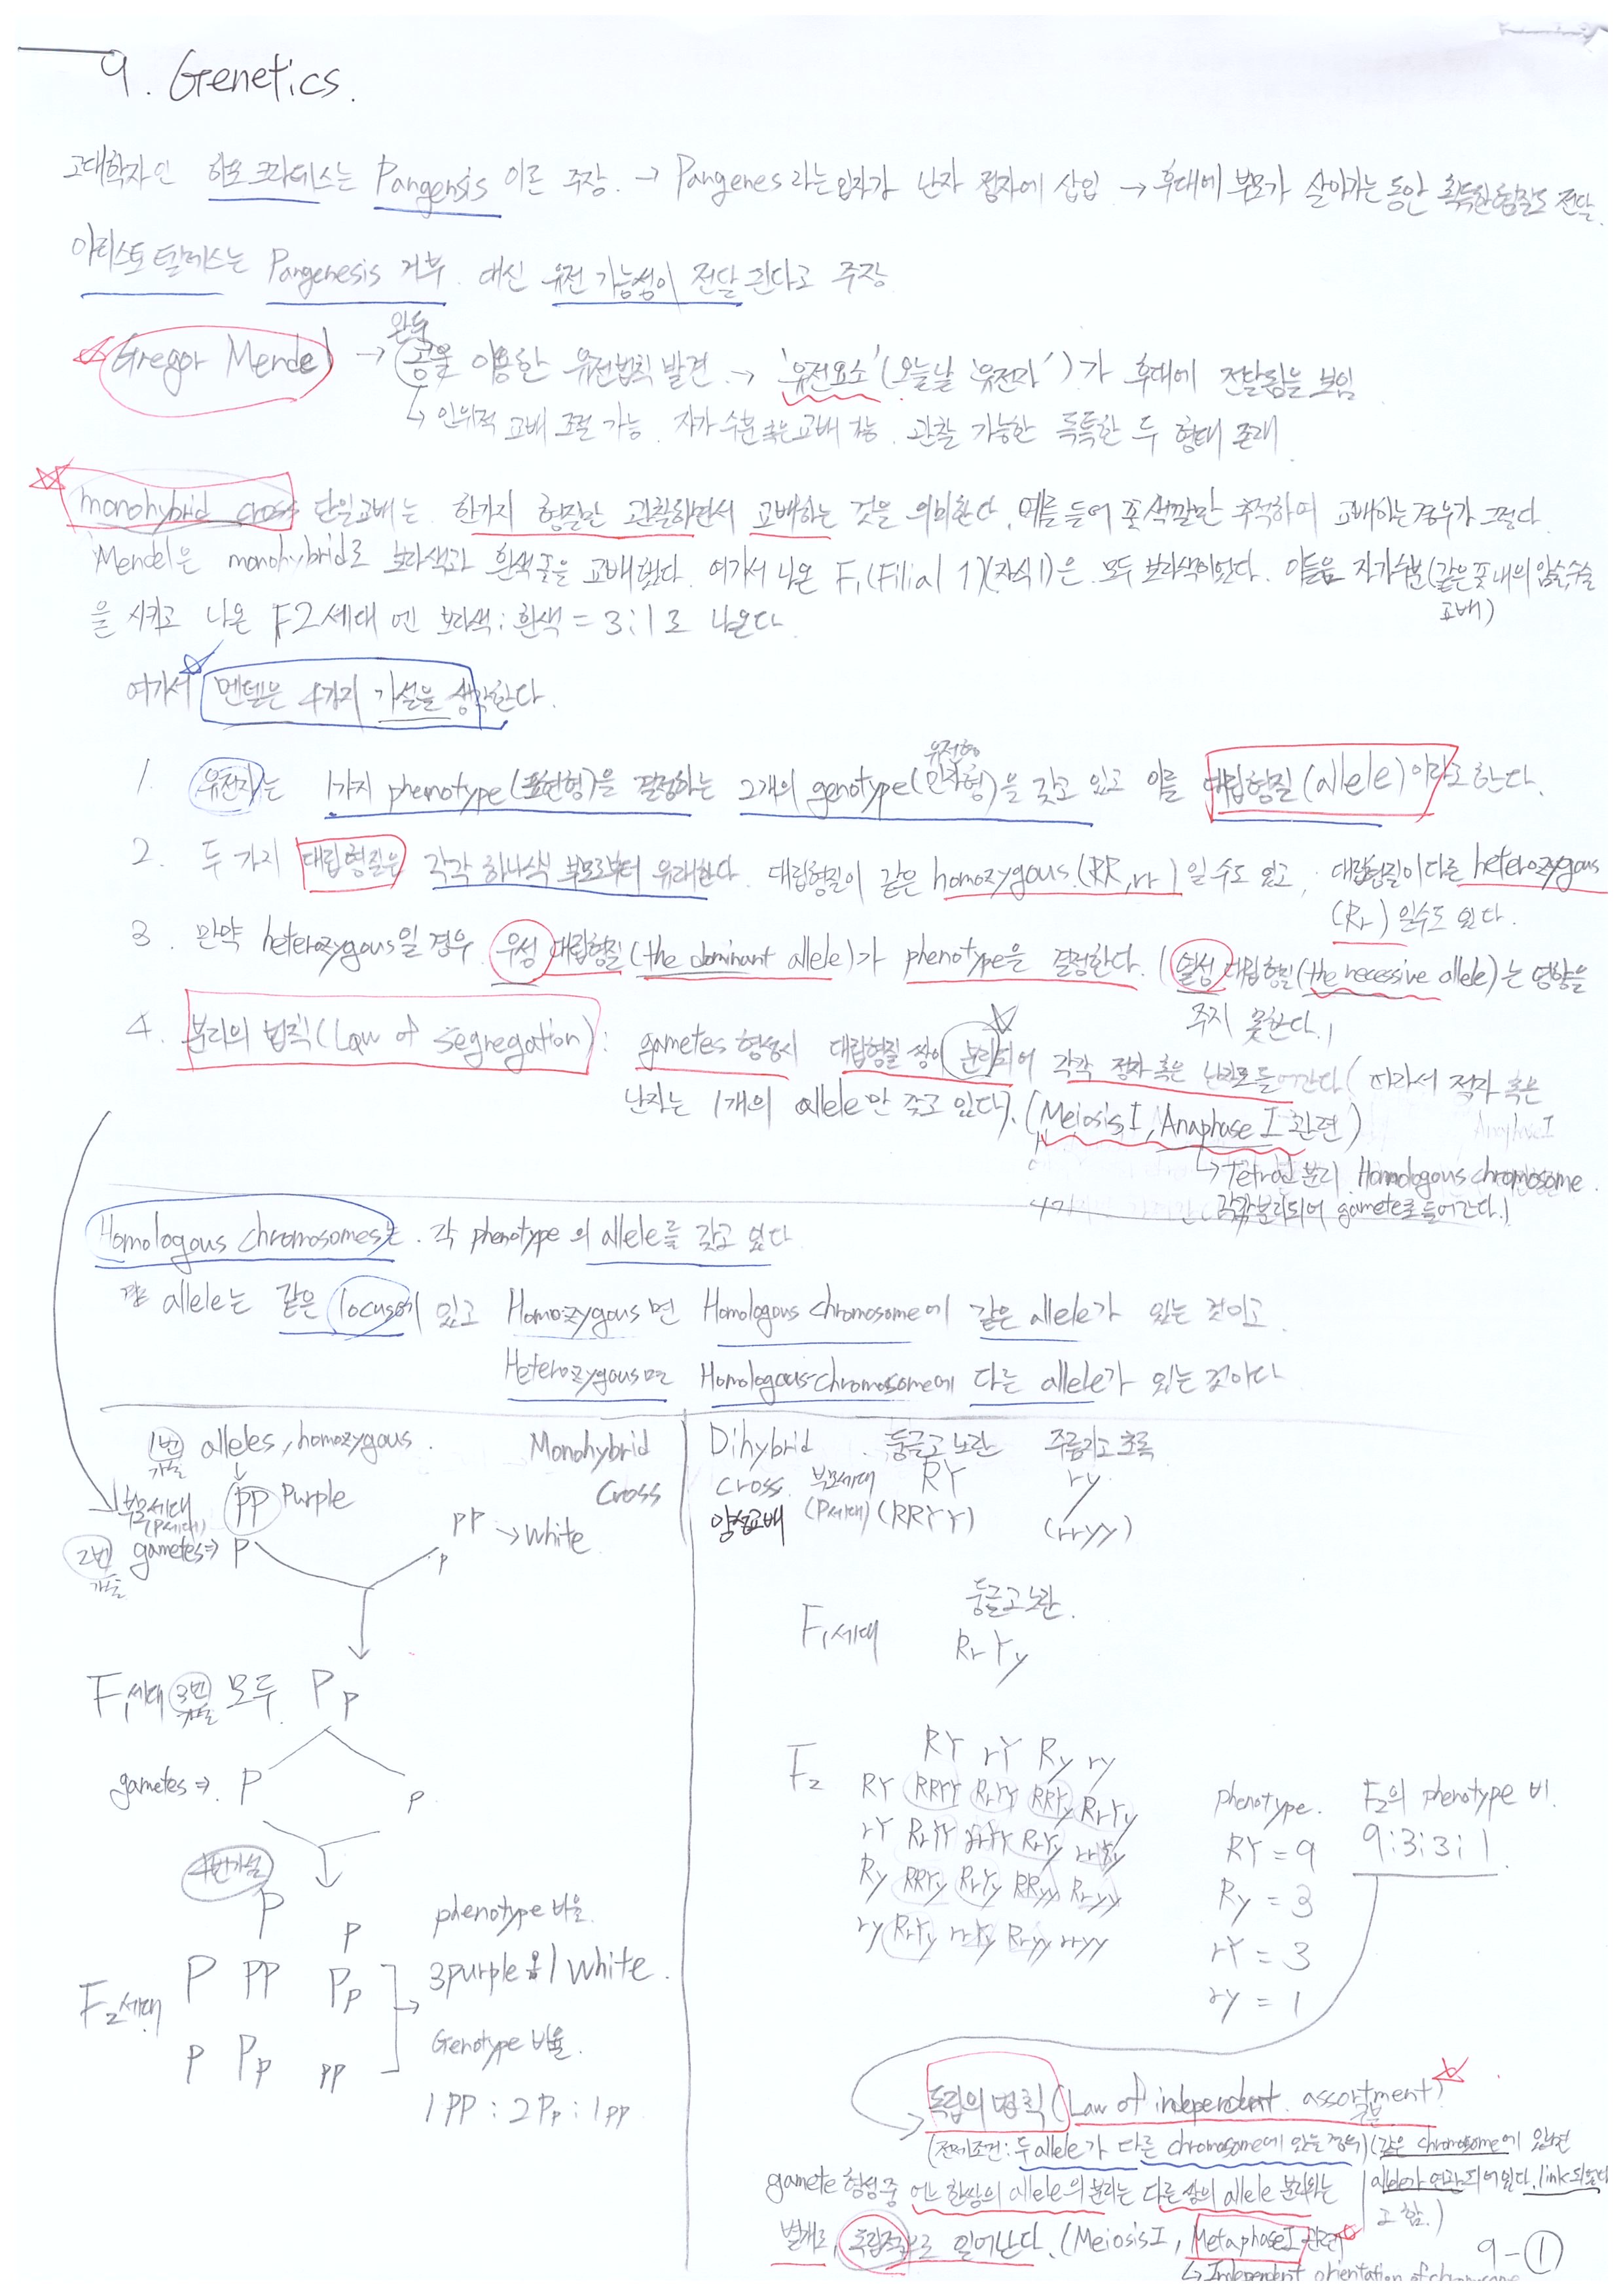 9. Genetics.
고대학자인 히포크라테스는 Pangensis 이론 주장. → Pangenes라는 입자가 난자 정자에 삽입 → 후대에 부모가 살아가는 동안 획득한 형질도 전달.
아리스토텔레스는 Pangenesis 거부. 대신 유전 가능성이 전달 된다고 주장
완두
Gregor Mendel → 콩을 이용한 유전법칙 발견 → '유전요소'(오늘날 '유전자')가 후대에 전달됨을 보임
↳ 인위적 교배 조절 가능. 자가수분 혹은 교배 가능. 관찰 가능한 독특한 두 형태 존재.
monohybrid cross 단일교배는 한가지 형질만 관찰하면서 교배하는 것을 의미한다. 예를 들어 꽃 색깔만 추적하며 교배하는 경우가 그렇다.
Mendel은 monohybrid로 보라색과 흰색 꽃을 교배했다. 여기서 나온 F1(Filial 1)(자식1)은 모두 보라색이었다. 이들을 자가수분(같은 꽃 내의 암술, 수술
교배)
을 시키고 나온 F2세대엔 보라색:흰색 = 3:1로 나온다.
여기서 멘델은 4가지 가설을 생각한다.
유전형
1. 유전자는 1가지 phenotype(표현형)을 결정하는 2개의 genotype(인자형)을 갖고 있고 이를 대립형질(allele)이라고 한다.
2. 두 가지 대립형질은 각각 하나씩 부모로부터 유래한다. 대립형질이 같은 homozygous.(RR, rr)일 수도 있고, 대립형질이 다른 heterozygous
(Rr)일수도 있다.
3. 만약 heterozygous일 경우 우성 대립형질(the dominant allele)가 phenotype을 결정한다. (열성 대립형질(the recessive allele)는 영향을
주지 못한다.)
4. 분리의 법칙(Law of segregation): gametes 형성시 대립형질 쌍이 분리되어 각각 정자 혹은 난자로 들어간다(따라서 정자 혹은
난자는 1개의 allele만 갖고 있다). (Meiosis I, Anaphase I 관련)
↳ Tetrad 분리 Homologous chromosome.
각각 분리되어 gamete로 들어간다.)
Homologous chromosomes는 각 phenotype의 allele를 갖고 있다.
각 allele는 같은 locus에 있고 Homozygous면 Homologous chromosome에 같은 allele가 있는 것이고
Heterozygous면 Homologous chromosome에 다른 allele가 있는 것이다
1번 가설 alleles, homozygous.
Monohybrid Cross
부모세대 (P세대) PP Purple
pp → white
2번 가설 gametes ⇒ P
p
F1세대 3번 가설 모두 Pp
gametes ⇒ P p
4번가설
P p
F2세대 P PP Pp
p Pp pp
phenotype 비율.
3purple : 1 white.
Genotype 비율.
1PP : 2Pp : 1pp
Dihybrid cross. 양성교배
둥글고 노란 주름지고 초록
부모세대 RY ry
(P세대) (RRYY) (rryy)
둥글고 노란.
F1세대 RrYy
F2 RY rY Ry ry
RY RRYY RrYY RRYy RrYy
rY RrYY rrYY RrYy rrYy
Ry RRYy RrYy RRyy Rryy
ry RrYy rrYy Rryy rryy
phenotype.
RY = 9
Ry = 3
rY = 3
ry = 1
F2의 phenotype 비.
9:3:3:1
독립의 법칙 (Law of independent assortment)
(전제조건: 두 allele가 다른 chromosome에 있는 경우)(같은 chromosome에 있으면
allele가 연관되어 있다. link되었다
고 함.)
gamete 형성중 어느 한쌍의 allele의 분리는 다른 쌍의 allele 분리와는
별개로, 독립적으로 일어난다. (Meiosis I, Metaphase I 관련)
↳ Independent orientation of chromosome
9-①